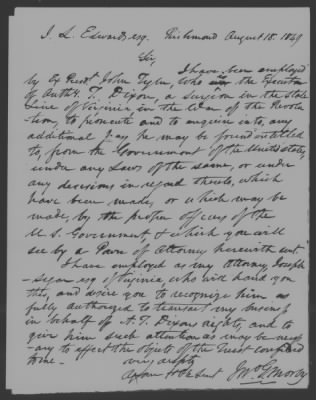 J. L. Edwards, esq. Richmond August 18. 1849
Sir,
I have been employed
by Ex Presdt. John Tyler, who is the Executor
of Anthy. T. Dixon, a surgeon in the State
Line of Virginia in the War of the Revolu
tion, to prosecute and to enquire into, any
additional pay he may be found entitled
to, from the Government of the United States,
under any Laws of the same, or under
any decisions in regard thereto, which
have been made, or which may be
made, by the proper officers of the
U. S. Government & which you will
see by a Power of Attorney herewith sent
I have employed as my attorney Joseph
Segar esq of Virginia, who will hand you
this, and desire you to recognize him as
fully authorized to transact my business
in behalf of A. T. Dixons rights, and to
give him such attention as may be necess
ary to effect the objects of the Trust confided
to me -
very respty
Jno G Mosby